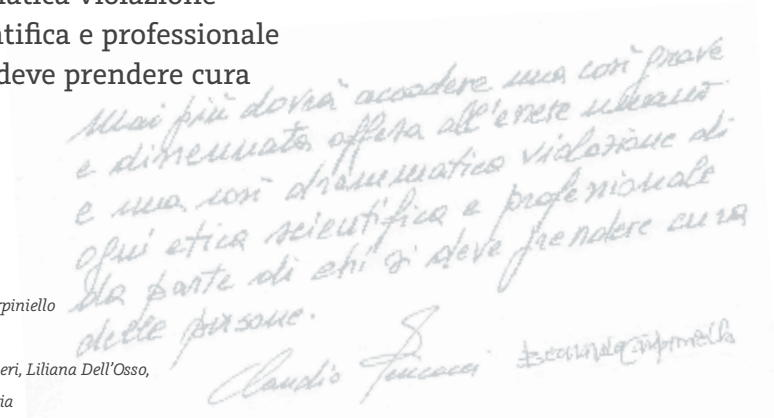 matica violazione
ntifica e professionale
deve prendere cura
Mai più dovrà accadere una così grave
e dissennata offesa all'essere umano
e una così drammatica violazione di
ogni etica scientifica e professionale
da parte di chi si deve prendere cura
delle persone.
Claudio Mencacci
rpiniello
eri, Liliana Dell'Osso,
ia